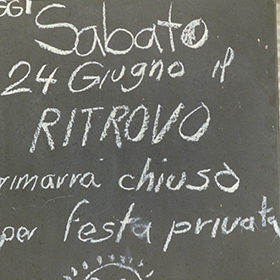 Sabato
24 Giugno il
RITROVO
rimarrà chiuso
per festa privata